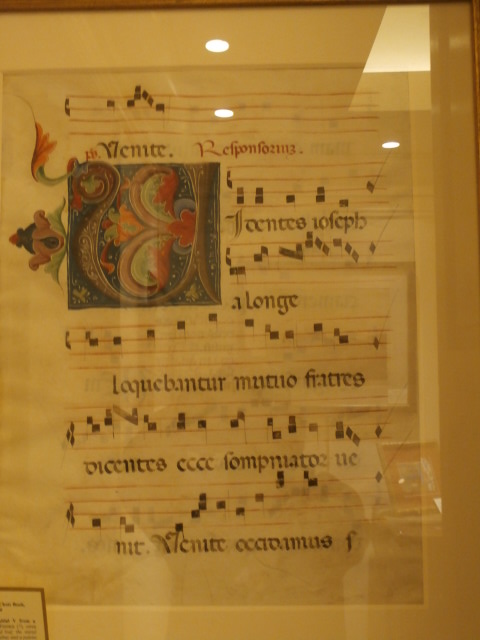 Venite. Responsoriuz.
VIdentes ioseph
a longe
loquebantur mutuo fratres
dicentes ecce sompniator ue
nit. Venite occidamus